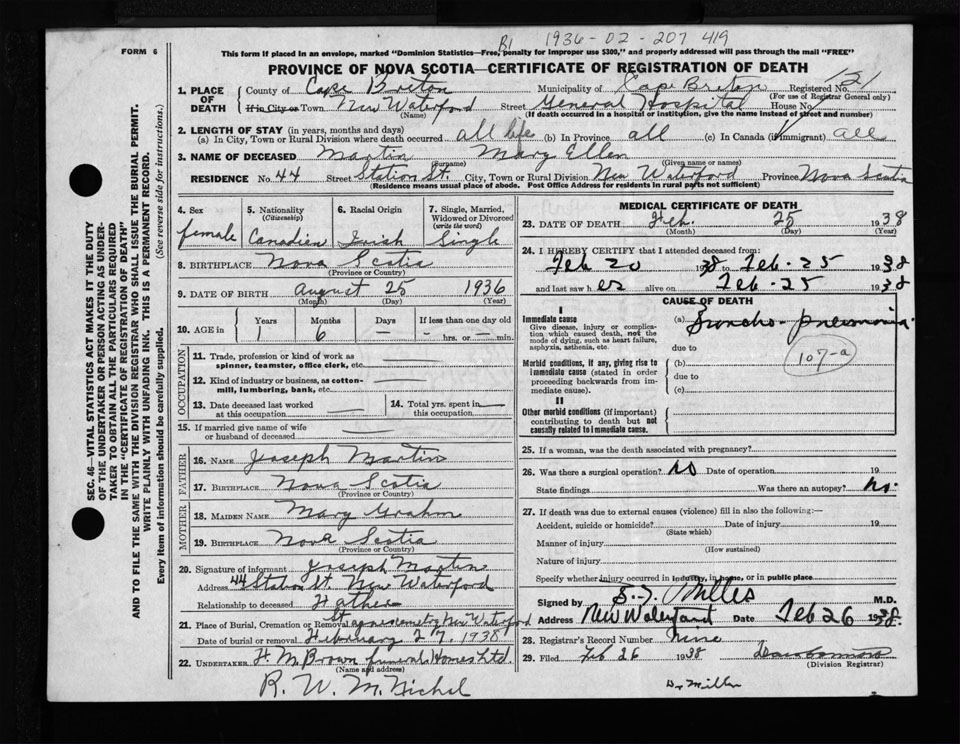 FORM 6
B1 1936-02-207 419
This form if placed in an envelope, marked "Dominion Statistics—Free, penalty for improper use $300," and properly addressed will pass through the mail "FREE"
PROVINCE OF NOVA SCOTIA—CERTIFICATE OF REGISTRATION OF DEATH
1. PLACE OF DEATH
County of Cape Breton Municipality of Cape Breton Registered No. 121
(For use of Registrar General only)
If in City or Town New Waterford Street General Hospital House No.
(Name) (If death occurred in a hospital or institution, give the name instead of street and number)
2. LENGTH OF STAY (in years, months and days)
(a) In City, Town or Rural Division where death occurred all life (b) In Province all (c) In Canada (if immigrant) all
3. NAME OF DECEASED Martin Mary Ellen
(Surname) (Given name or names)
RESIDENCE No. 44 Street Station St. City, Town or Rural Division New Waterford Province Nova Scotia
(Residence means usual place of abode. Post Office Address for residents in rural parts not sufficient)
4. Sex female
5. Nationality (Citizenship) Canadien
6. Racial Origin Irish
7. Single, Married, Widowed or Divorced (write the word) Single
8. BIRTHPLACE Nova Scotia
(Province or Country)
9. DATE OF BIRTH August 25 1936
(Month) (Day) (Year)
10. AGE in Years Months Days If less than one day old
1 6 — — hrs. or — min.
OCCUPATION
11. Trade, profession or kind of work as spinner, teamster, office clerk, etc. —
12. Kind of industry or business, as cotton-mill, lumbering, bank, etc. —
13. Date deceased last worked at this occupation —
14. Total yrs. spent in this occupation —
15. If married give name of wife or husband of deceased —
FATHER
16. NAME Joseph Martin
17. BIRTHPLACE Nova Scotia
(Province or Country)
MOTHER
18. MAIDEN NAME Mary Graham
19. BIRTHPLACE Nova Scotia
(Province or Country)
20. Signature of informant Joseph Martin
Address 44 Station St. New Waterford
Relationship to deceased Father
21. Place of Burial, Cremation or Removal St. New Waterford
Date of burial or removal February 27, 1938
22. UNDERTAKER H. M. Brown funeral Homes Ltd.
(Name and address)
R. W. McNichol
MEDICAL CERTIFICATE OF DEATH
23. DATE OF DEATH Feb. 25 1938
(Month) (Day) (Year)
24. I HEREBY CERTIFY that I attended deceased from:
Feb 20 1938 to Feb-25 1938
and last saw her alive on Feb-25 1938
CAUSE OF DEATH
I
Immediate cause
Give disease, injury or complication which caused death, not the mode of dying, such as heart failure, asphyxia, asthenia, etc.
(a) Broncho-pneumonia
due to
107-a
Morbid conditions, if any, giving rise to immediate cause (stated in order proceeding backwards from immediate cause).
(b)
due to
(c)
II
Other morbid conditions (if important) contributing to death but not causally related to immediate cause.
25. If a woman, was the death associated with pregnancy?
26. Was there a surgical operation? no Date of operation 19
State findings Was there an autopsy? no.
27. If death was due to external causes (violence) fill in also the following:—
Accident, suicide or homicide? Date of injury 19
(State which)
Manner of injury
(How sustained)
Nature of injury
Specify whether injury occurred in industry, in home, or in public place
Signed by Miller M.D.
Address New Waterford Date Feb 26 1938.
28. Registrar's Record Number Nine
29. Filed Feb 26 1938
(Division Registrar)
Dr Miller
SEC. 46—VITAL STATISTICS ACT MAKES IT THE DUTY
OF THE UNDERTAKER OR PERSON ACTING AS UNDER-
TAKER TO OBTAIN ALL THE PARTICULARS REQUIRED
IN THE "CERTIFICATE OF REGISTRATION OF DEATH"
AND TO FILE THE SAME WITH THE DIVISION REGISTRAR WHO SHALL ISSUE THE BURIAL PERMIT.
WRITE PLAINLY WITH UNFADING INK. THIS IS A PERMANENT RECORD.
Every item of information should be carefully supplied. (See reverse side for instructions.)